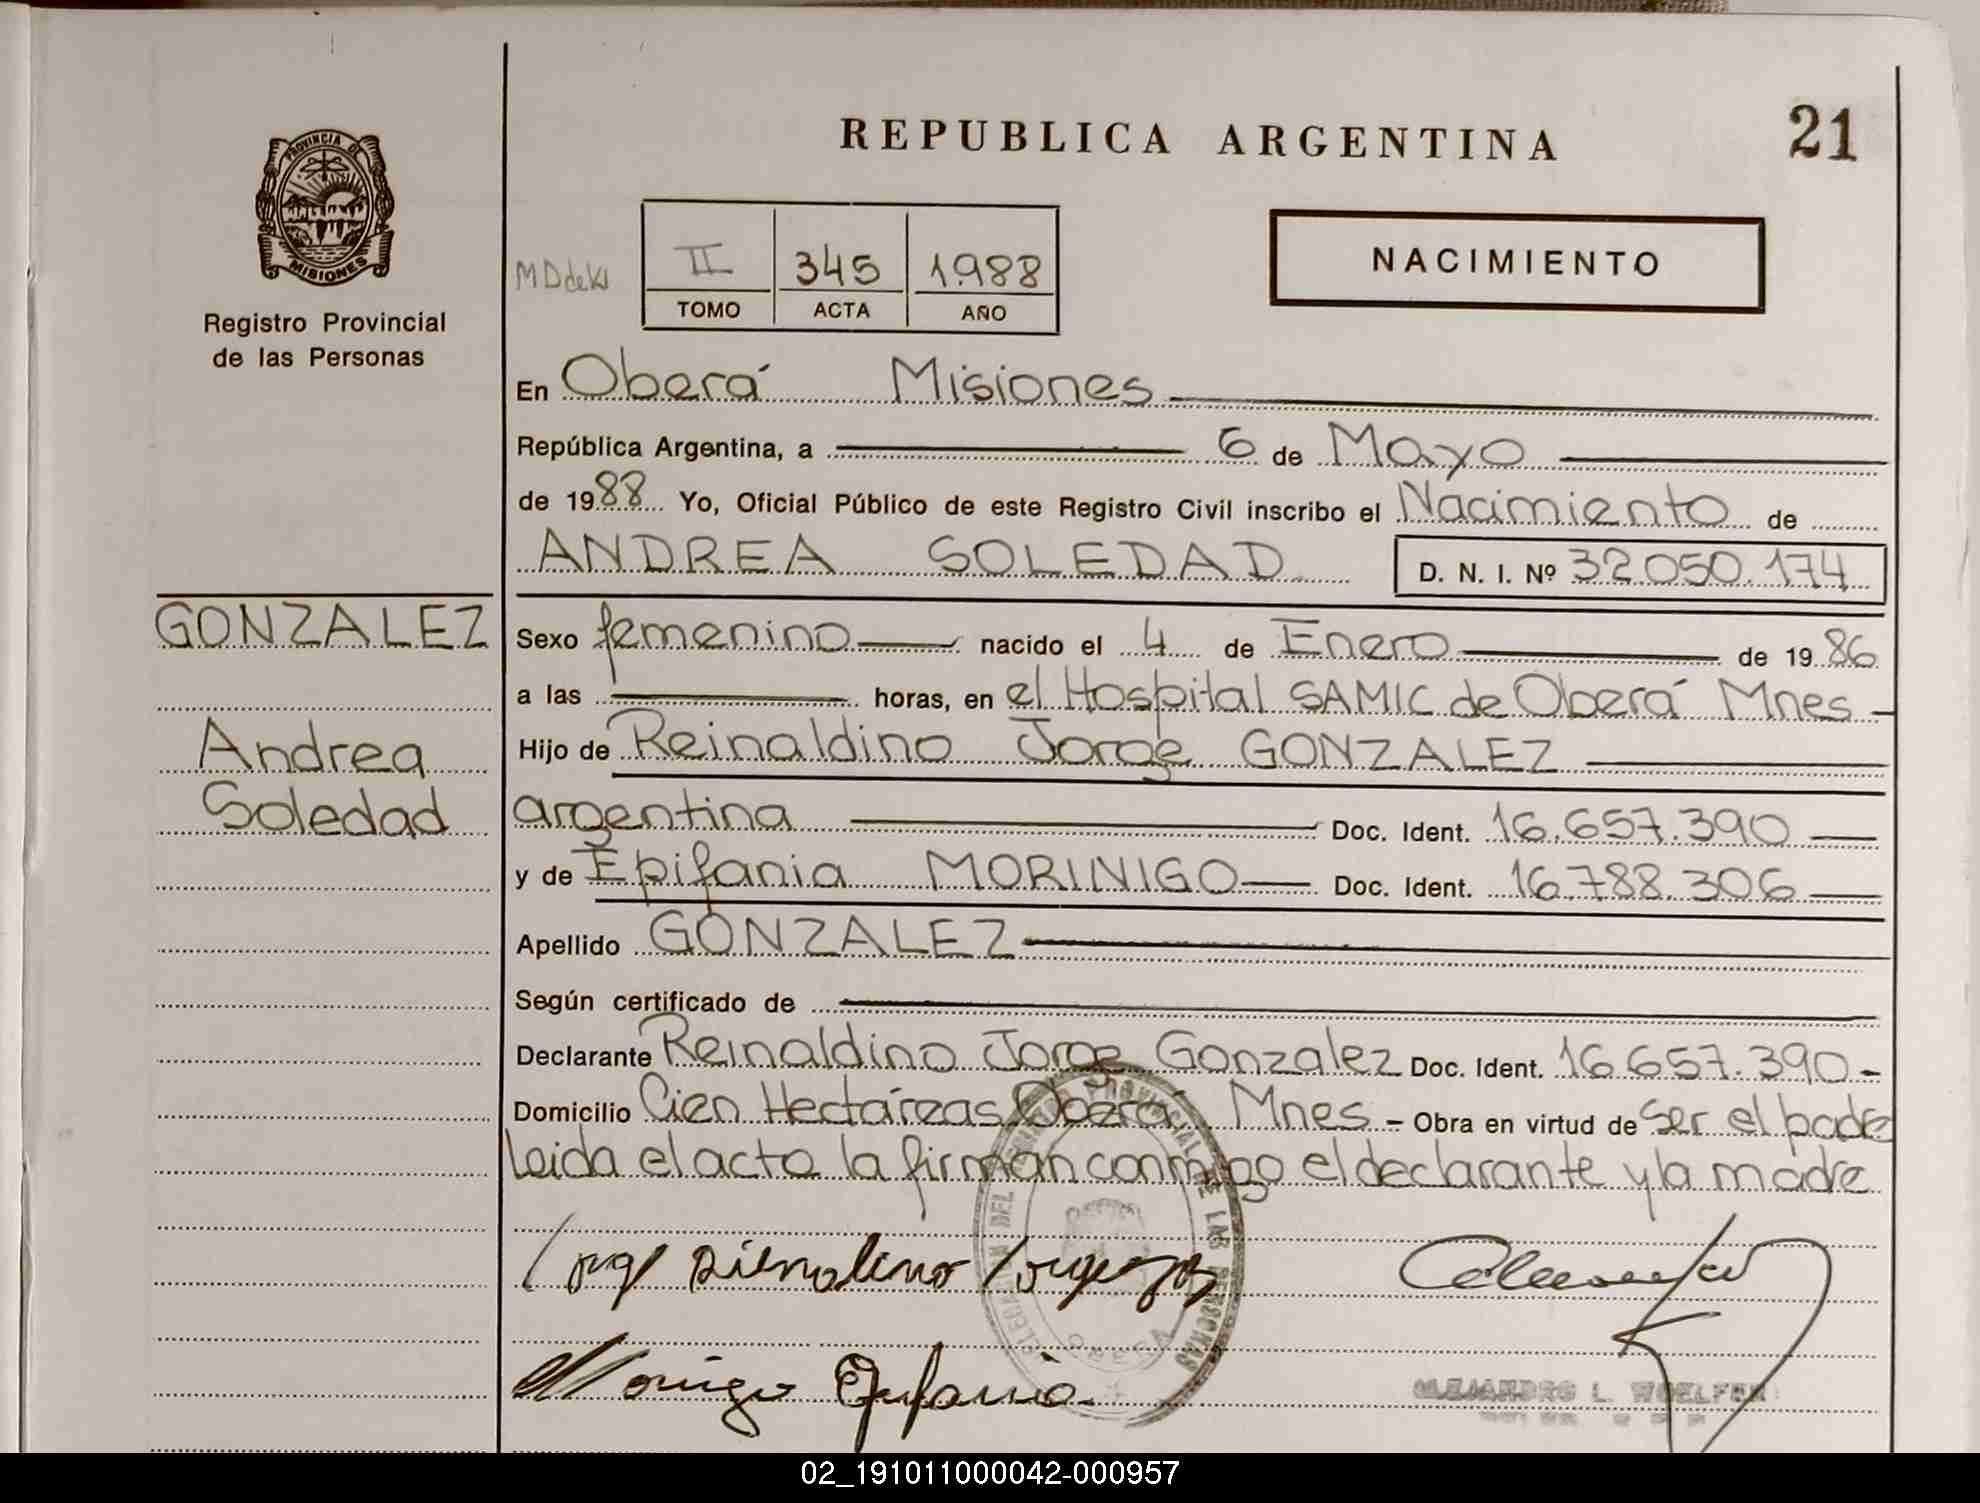 REPUBLICA ARGENTINA
21
PROVINCIA DE
MISIONES
Registro Provincial
de las Personas
II 345 1.988
TOMO ACTA AÑO
NACIMIENTO
En Oberá Misiones
República Argentina, a 6 de Mayo
de 1988 Yo, Oficial Público de este Registro Civil inscribo el Nacimiento de
ANDREA SOLEDAD D. N. I. Nº 32.050.174
GONZALEZ
Andrea
Soledad
Sexo femenino nacido el 4 de Enero de 1986
a las horas, en el Hospital SAMIC de Oberá Mnes -
Hijo de Reinaldino Jorge GONZALEZ
argentina Doc. Ident. 16.657.390
y de Epifania MORINIGO Doc. Ident. 16.788.306
Apellido GONZALEZ
Según certificado de
Declarante Reinaldino Jorge Gonzalez Doc. Ident. 16.657.390-
Domicilio Cien Hectáreas Oberá Mnes - Obra en virtud de ser el padre
Leida el acta la firman conmigo el declarante y la madre
Morinigo Epifania
ALEJANDRO L.
02_191011000042-000957